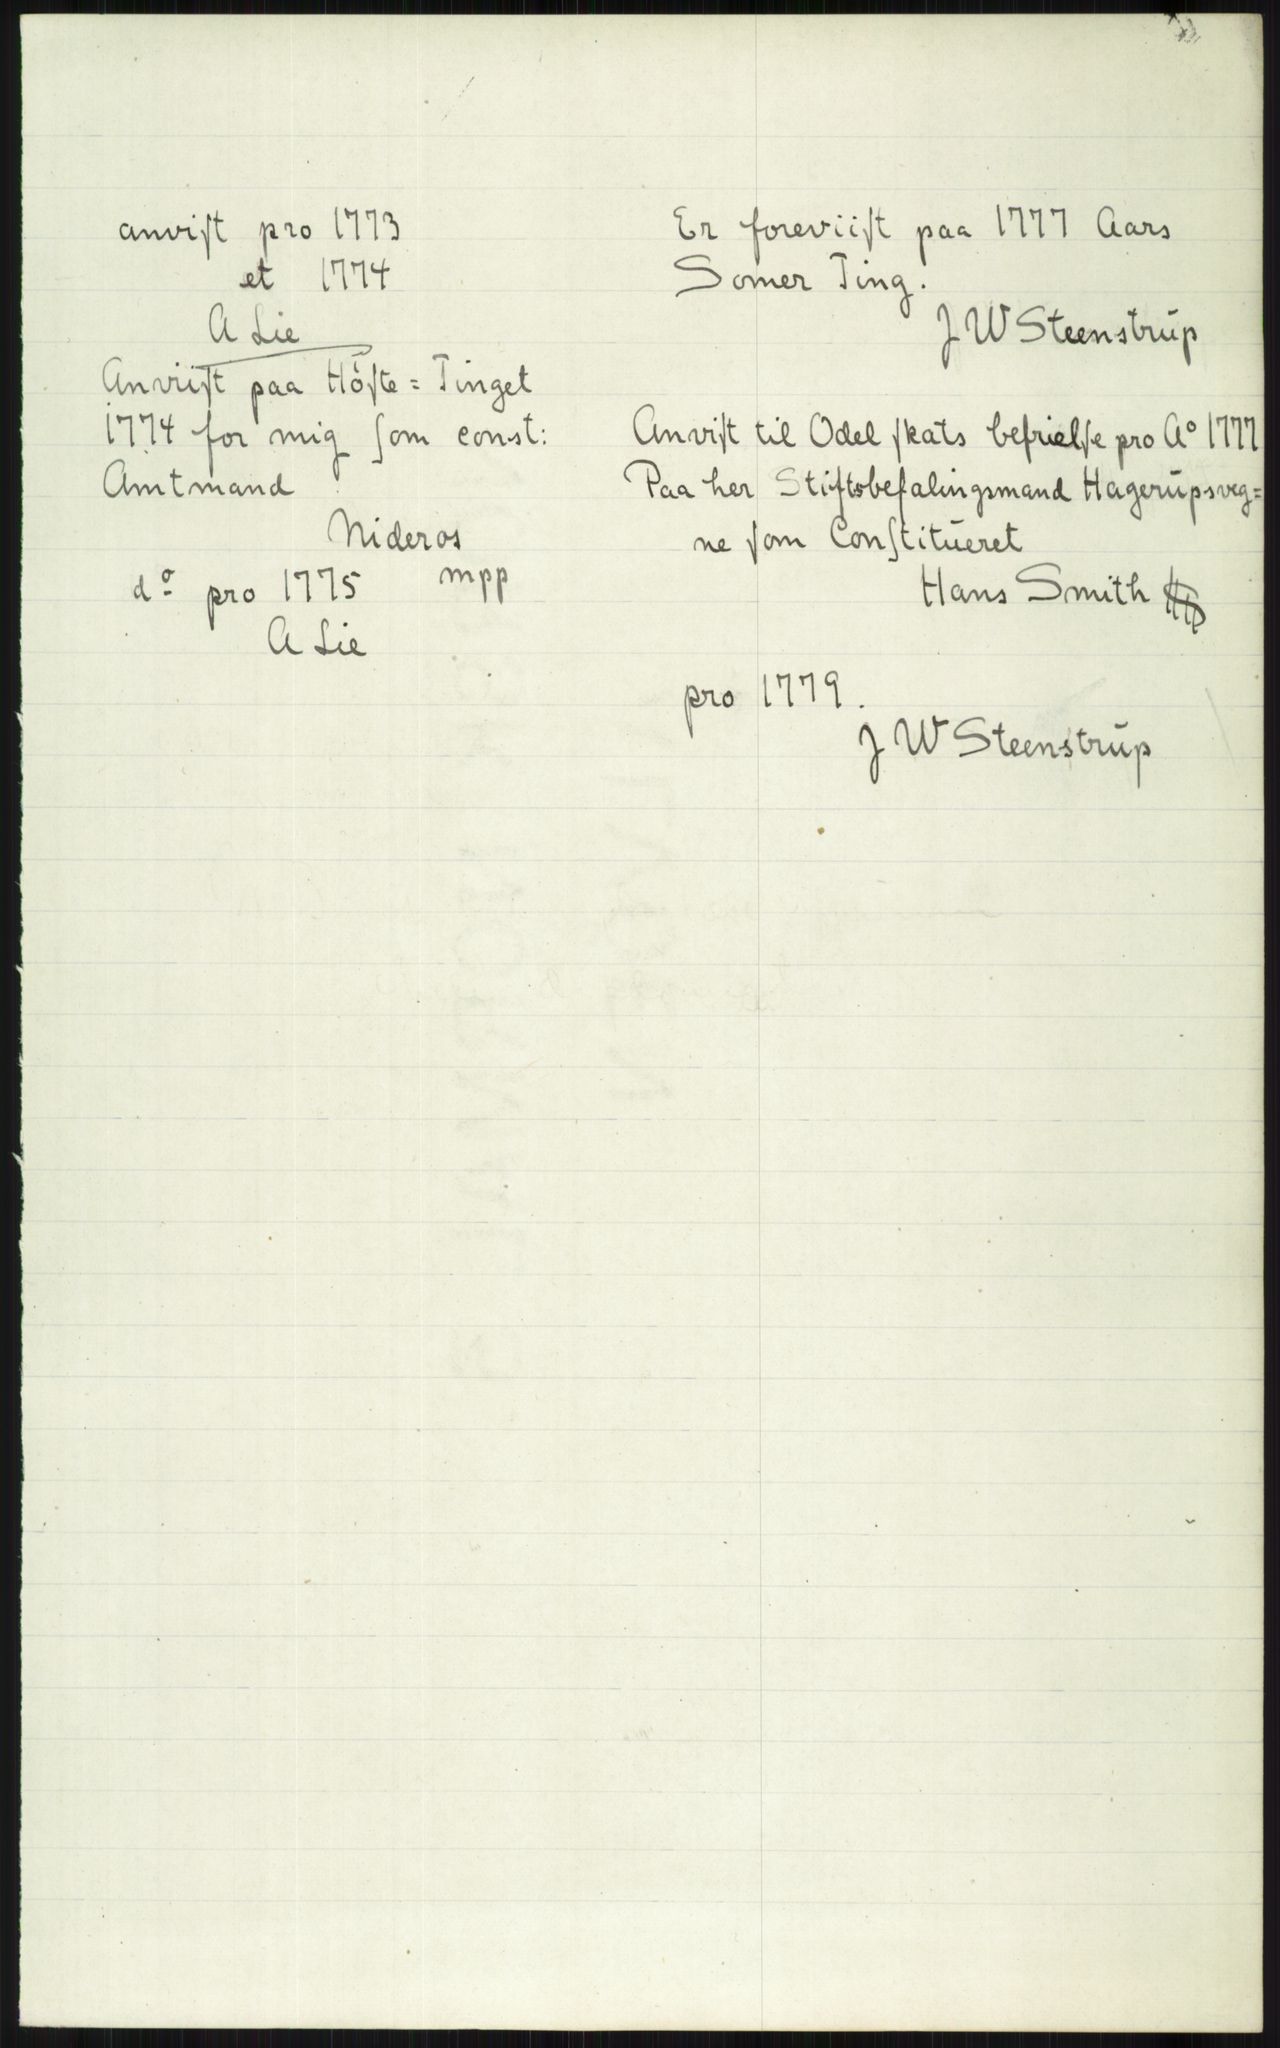 anviſt pro 1773
et 1774
A Lie
Anviiſt paa Höſte = Tinget
1774 for mig ſom const:
Amtmand
Nideros
mpp
dº pro 1775
A Lie
Er foreviiſt paa 1777 Aars
Somer Ting.
J W Steenstrup
Anviſt til Odel ſkats befrielſe pro Aº 1777
Paa her Stiftsbefalingsmand Hagerups veg=
ne ſom Conſtitueret
Hans Smith
pro 1779.
J W Steenstrup